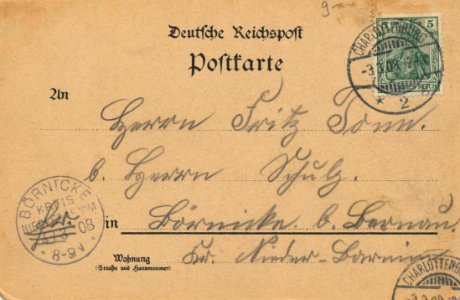 9-
Deutsche Reichspost
Postkarte
5
CHARLOTTENBURG
-3.3.08
* 2
An
Herrn Fritz
b. Herrn Schulz.
BÖRNICKE
KREIS
08
* 8-9V *
in Börnicke b. Bernau.
Kr. Nieder-Barnim
Wohnung
(Straße und Hausnummer)
CHARLOTTENBURG